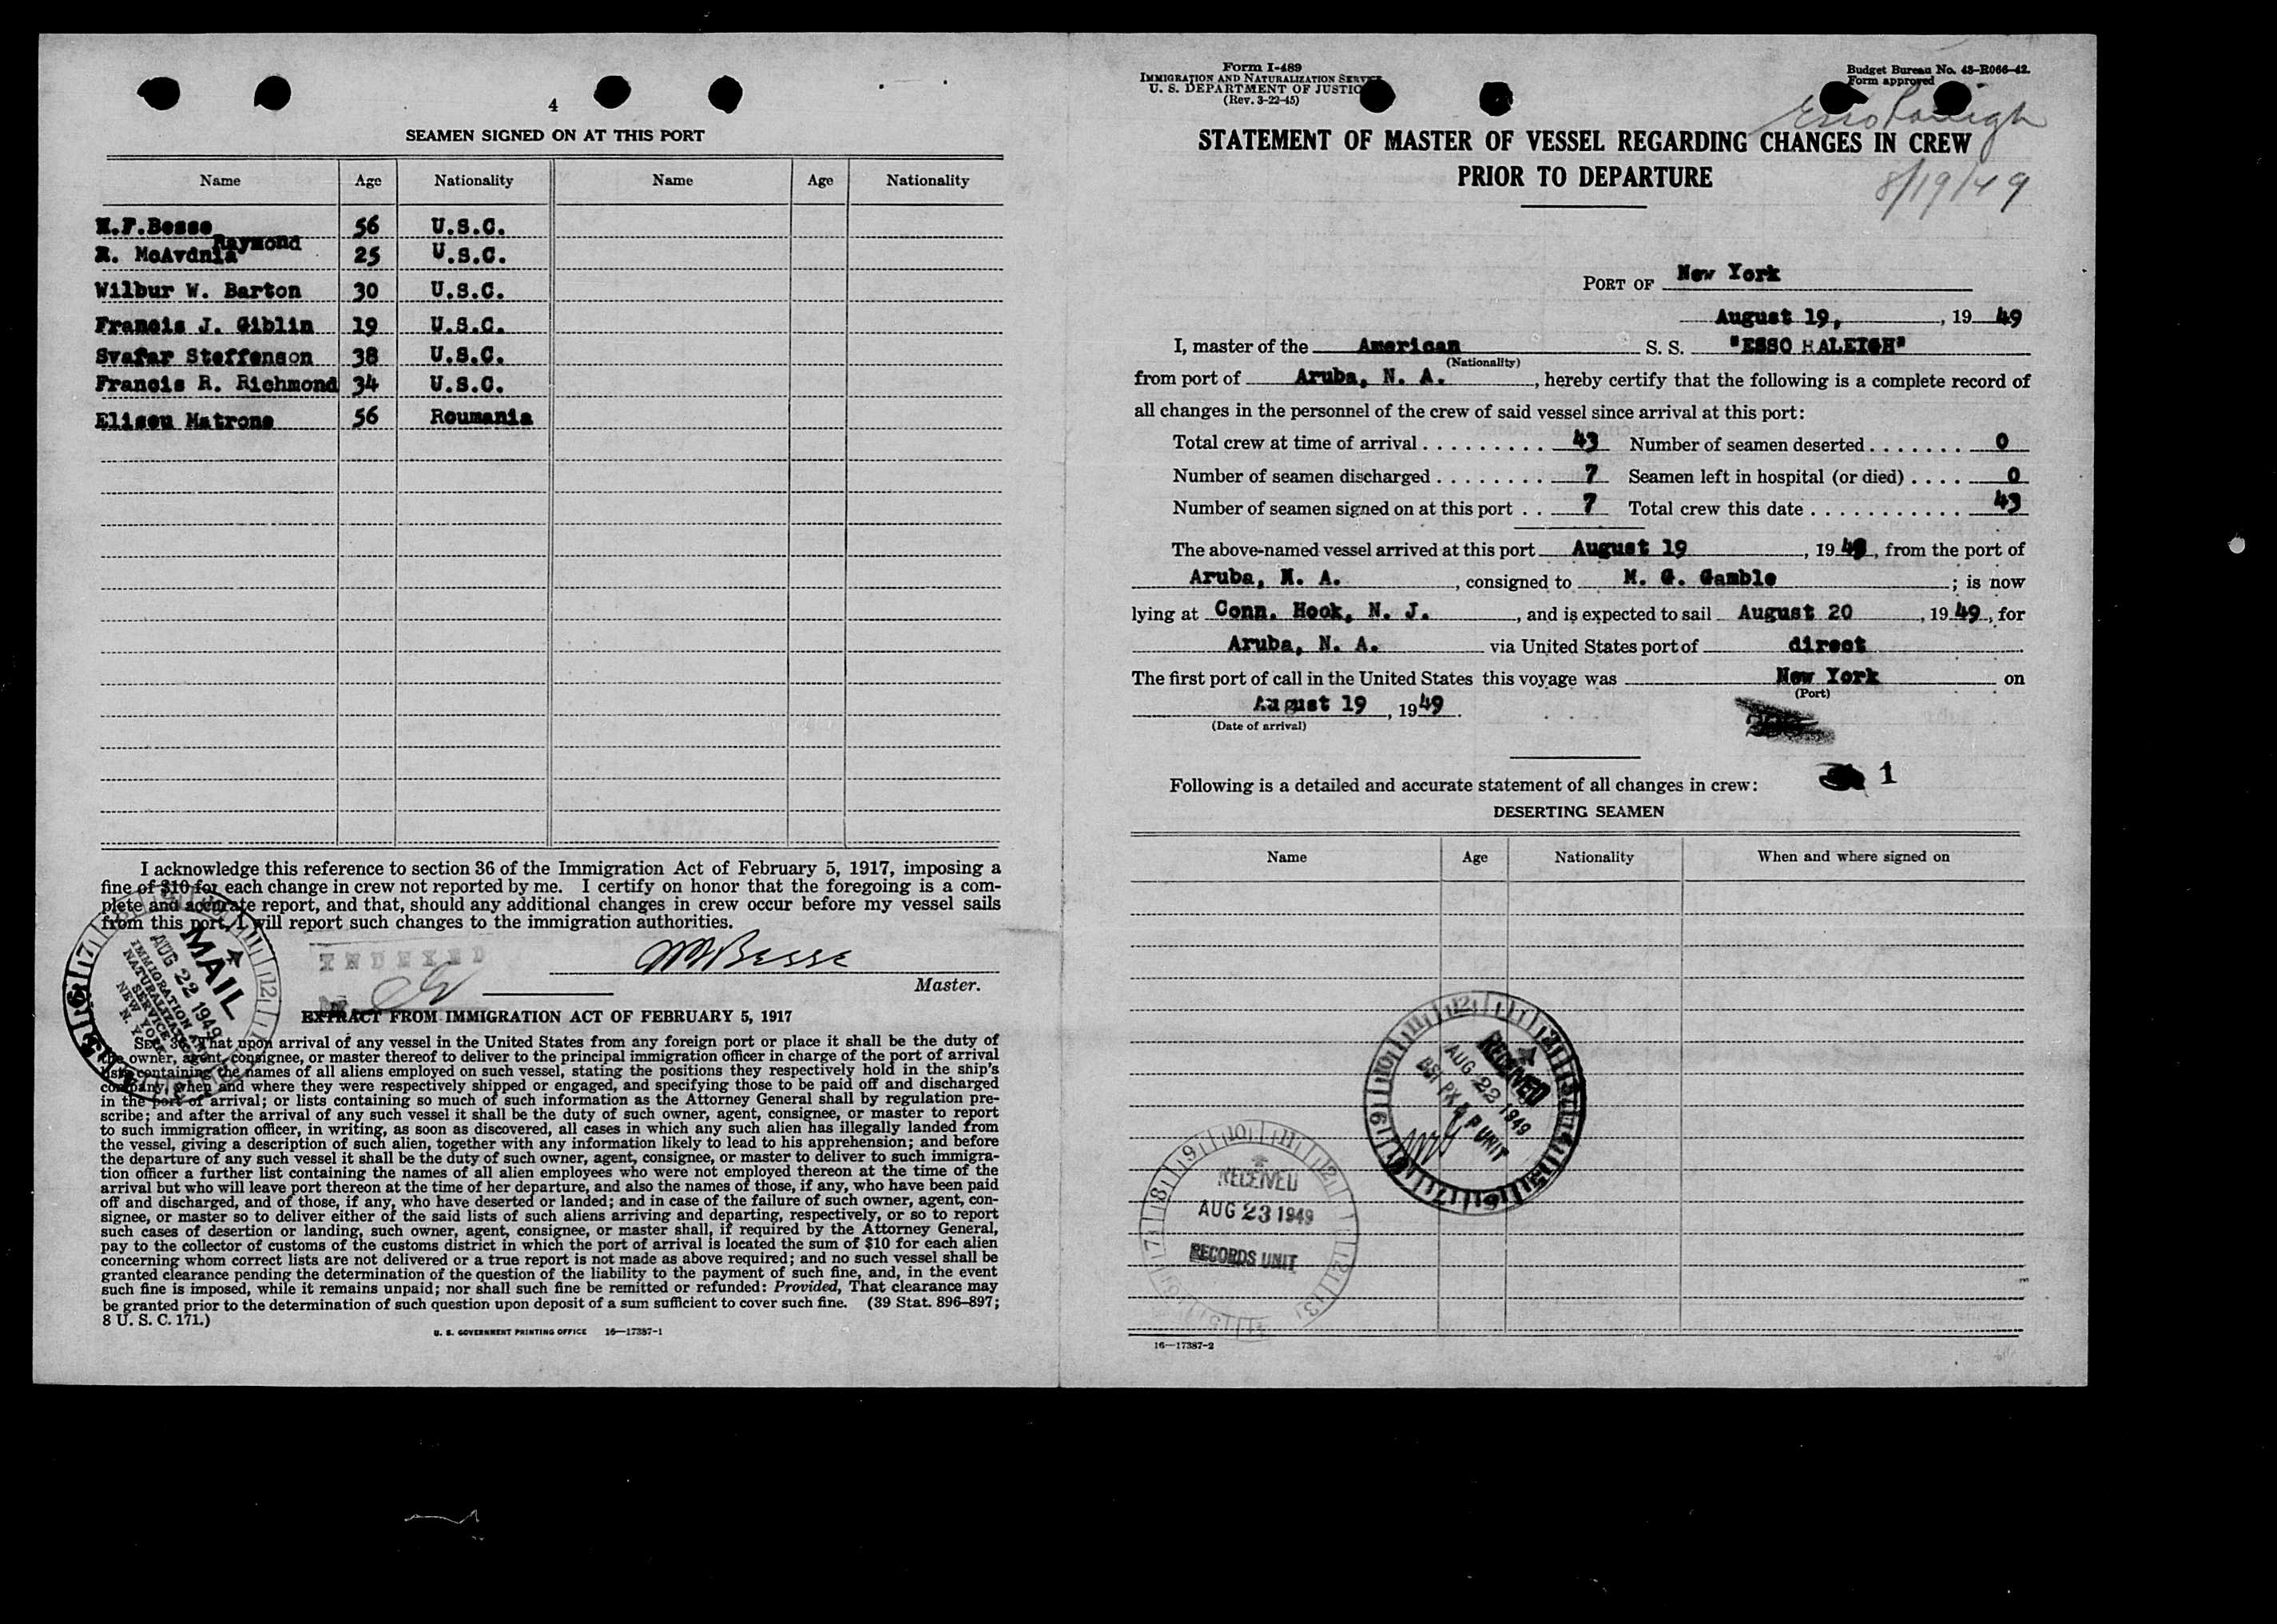 4
SEAMEN SIGNED ON AT THIS PORT
Name Age Nationality Name Age Nationality
F.Besse 56 U.S.C.
Raymond
R. McAvdnia 25 U.S.C.
Wilbur W. Barton 30 U.S.C.
Francis J. Giblin 19 U.S.C.
Svafar Steffenson 38 U.S.C.
Francis R. Richmond 34 U.S.C.
Eliseu Matrone 56 Roumania
I acknowledge this reference to section 36 of the Immigration Act of February 5, 1917, imposing a
fine of $10 for each change in crew not reported by me. I certify on honor that the foregoing is a com-
plete and accurate report, and that, should any additional changes in crew occur before my vessel sails
from this port, I will report such changes to the immigration authorities.
MAIL
AUG 22 1949
IMMIGRATION
NATURALIZATION
SERVICE
NEW YORK
N. Y.
INDEXED
Besse
Master.
EXTRACT FROM IMMIGRATION ACT OF FEBRUARY 5, 1917
SEC. 36. That upon arrival of any vessel in the United States from any foreign port or place it shall be the duty of
the owner, agent, consignee, or master thereof to deliver to the principal immigration officer in charge of the port of arrival
lists containing the names of all aliens employed on such vessel, stating the positions they respectively hold in the ship's
company, when and where they were respectively shipped or engaged, and specifying those to be paid off and discharged
in the port of arrival; or lists containing so much of such information as the Attorney General shall by regulation pre-
scribe; and after the arrival of any such vessel it shall be the duty of such owner, agent, consignee, or master to report
to such immigration officer, in writing, as soon as discovered, all cases in which any such alien has illegally landed from
the vessel, giving a description of such alien, together with any information likely to lead to his apprehension; and before
the departure of any such vessel it shall be the duty of such owner, agent, consignee, or master to deliver to such immigra-
tion officer a further list containing the names of all alien employees who were not employed thereon at the time of the
arrival but who will leave port thereon at the time of her departure, and also the names of those, if any, who have been paid
off and discharged, and of those, if any, who have deserted or landed; and in case of the failure of such owner, agent, con-
signee, or master so to deliver either of the said lists of such aliens arriving and departing, respectively, or so to report
such cases of desertion or landing, such owner, agent, consignee, or master shall, if required by the Attorney General,
pay to the collector of customs of the customs district in which the port of arrival is located the sum of $10 for each alien
concerning whom correct lists are not delivered or a true report is not made as above required; and no such vessel shall be
granted clearance pending the determination of the question of the liability to the payment of such fine, and, in the event
such fine is imposed, while it remains unpaid; nor shall such fine be remitted or refunded: Provided, That clearance may
be granted prior to the determination of such question upon deposit of a sum sufficient to cover such fine. (39 Stat. 896–897;
8 U. S. C. 171.)
U. S. GOVERNMENT PRINTING OFFICE 16—17387-1
Form I-489
IMMIGRATION AND NATURALIZATION SERVICE
U. S. DEPARTMENT OF JUSTIC
(Rev. 3-22-45)
Budget Bureau No. 43-R066-42.
Form approved
Esso Raleigh
8/19/49
STATEMENT OF MASTER OF VESSEL REGARDING CHANGES IN CREW
PRIOR TO DEPARTURE
PORT OF New York
August 19, , 19 49
I, master of the American S. S. "ESSO RALEIGH"
(Nationality)
from port of Aruba, N. A. , hereby certify that the following is a complete record of
all changes in the personnel of the crew of said vessel since arrival at this port:
Total crew at time of arrival . . . . . . . . . 43 Number of seamen deserted . . . . . . . 0
Number of seamen discharged . . . . . . . . 7 Seamen left in hospital (or died) . . . . 0
Number of seamen signed on at this port . . 7 Total crew this date . . . . . . . . . . . 43
The above-named vessel arrived at this port August 19 , 19 49, from the port of
Aruba, N. A. , consigned to M. G. Gamble ; is now
lying at Conn. Hook, N. J. , and is expected to sail August 20 , 19 49, for
Aruba, N. A. via United States port of direct
The first port of call in the United States this voyage was New York on
(Port)
August 19 , 19 49.
(Date of arrival)
Following is a detailed and accurate statement of all changes in crew: 1
DESERTING SEAMEN
Name Age Nationality When and where signed on
RECEIVED
AUG 22 1949
BSI PX & P UNIT
RECEIVED
AUG 23 1949
RECORDS UNIT
16—17387-2